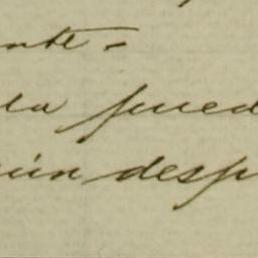 nte -
la pued
ún desp